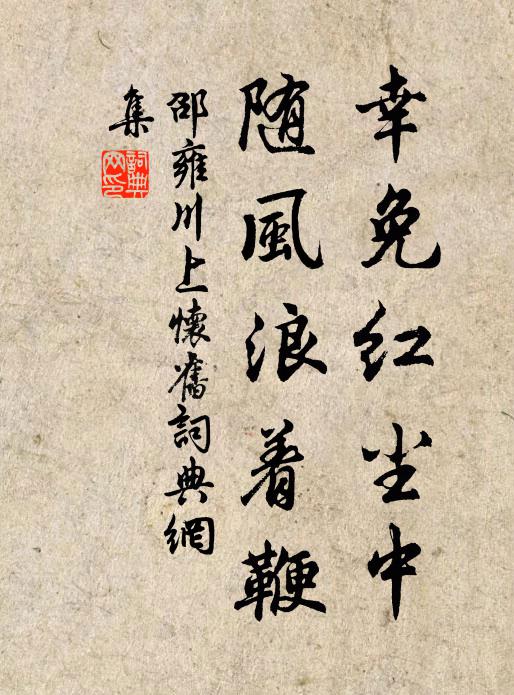 幸免红尘中
随風浪着鞭
邵雍川上懷舊詞典網
集
詞典
网印